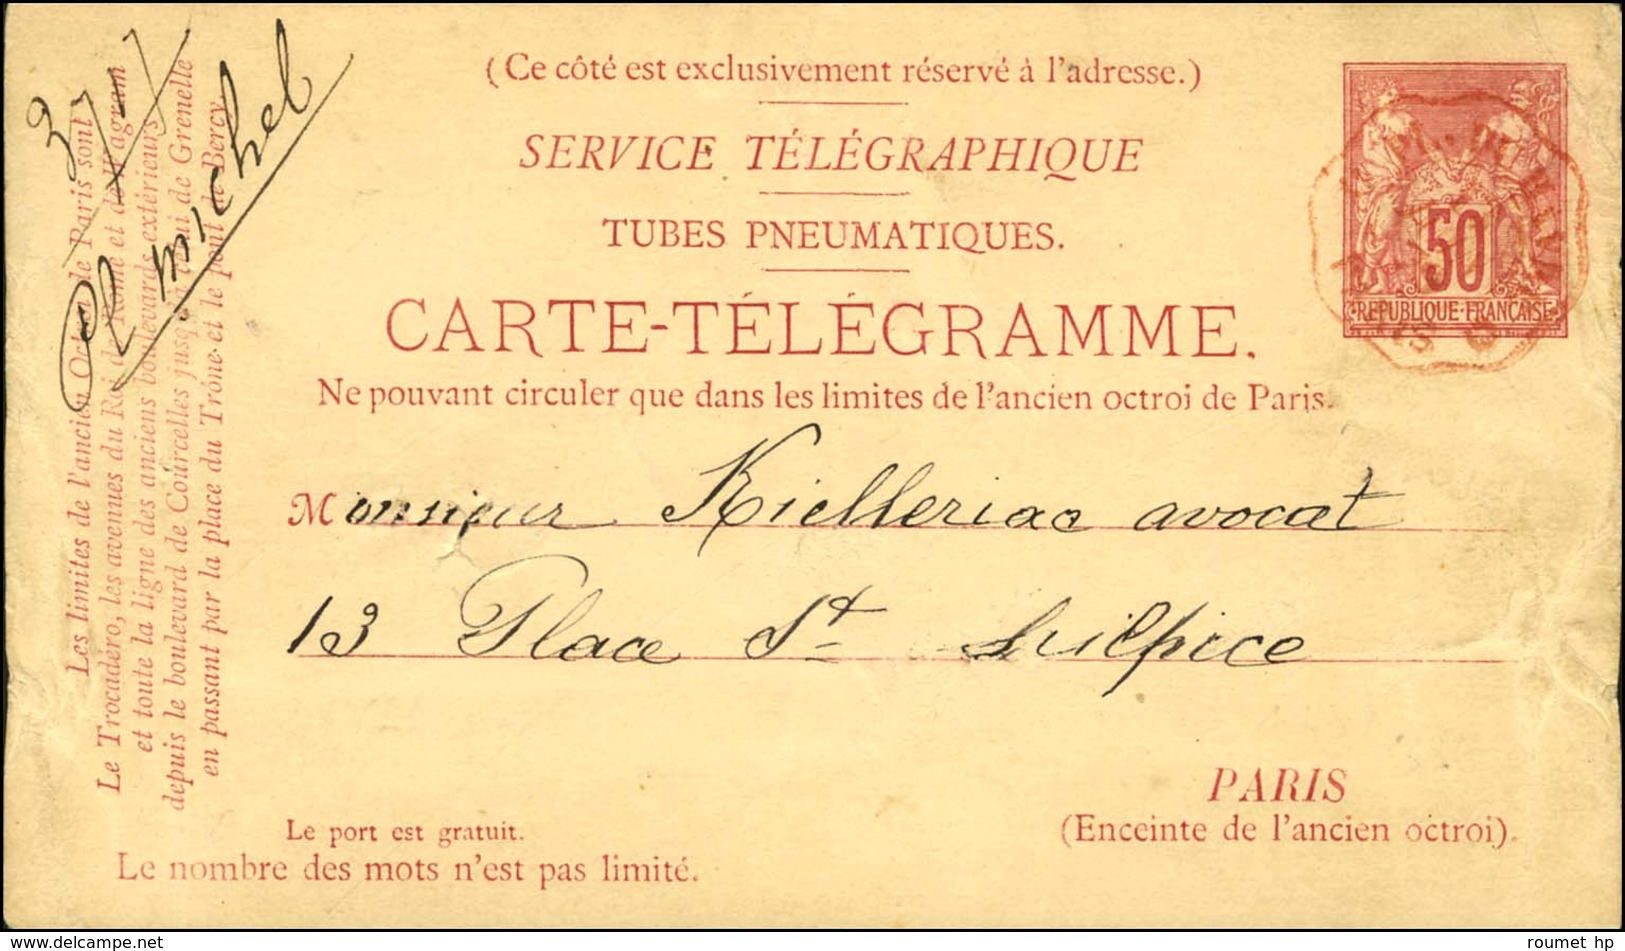 (Ce côté est exclusivement réservé à l'adresse.)
SERVICE TÉLÉGRAPHIQUE
TUBES PNEUMATIQUES.
CARTE-TÉLÉGRAMME.
Ne pouvant circuler que dans les limites de l'ancien octroi de Paris.
50
REPUBLIQUE FRANÇAISE
Monsieur Kielleriac avocat
13 Place St Sulpice
PARIS
(Enceinte de l'ancien octroi).
Le port est gratuit.
Le nombre des mots n'est pas limité.
Les limites de l'ancien Octroi de Paris sont:
Le Trocadéro, les avenues du Roi de Rome et de Wagram
et toute la ligne des anciens boulevards extérieurs
depuis le boulevard de Courcelles jusqu'à celui de Grenelle
en passant par la place du Trône et le pont de Bercy.
michel
roumet hp